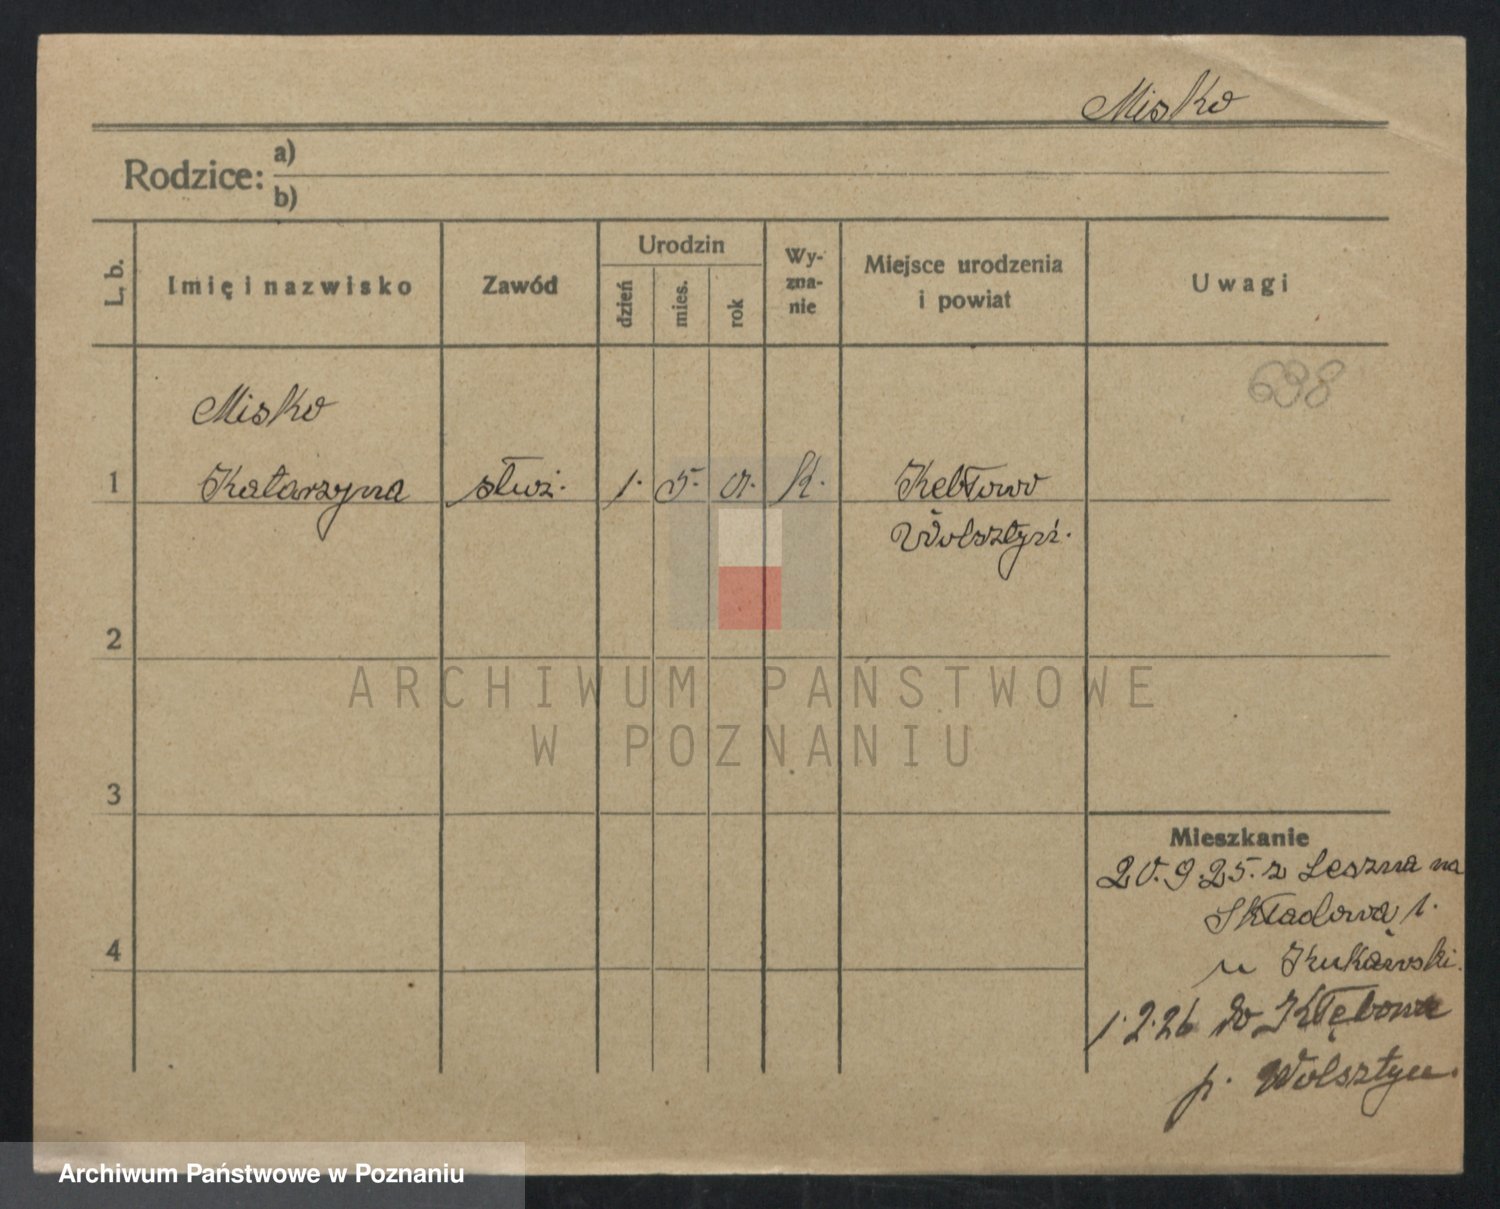 Misko
Rodzice: a)
b)
L. b.
Imię i nazwisko
Zawód
Urodzin
dzień
mies.
rok
Wy-
zna-
nie
Miejsce urodzenia
i powiat
Uwagi
698
Misko
1 Katarzyna służ. 1. 5. K. Kebłowo
Wolsztyn.
2
3
4
Mieszkanie
20.9.25. z Leszna na
Składowa 1.
u Kukawski.
1.2.26 do Kłębowa
p. Wolsztyn.
ARCHIWUM PAŃSTWOWE
W POZNANIU
Archiwum Państwowe w Poznaniu